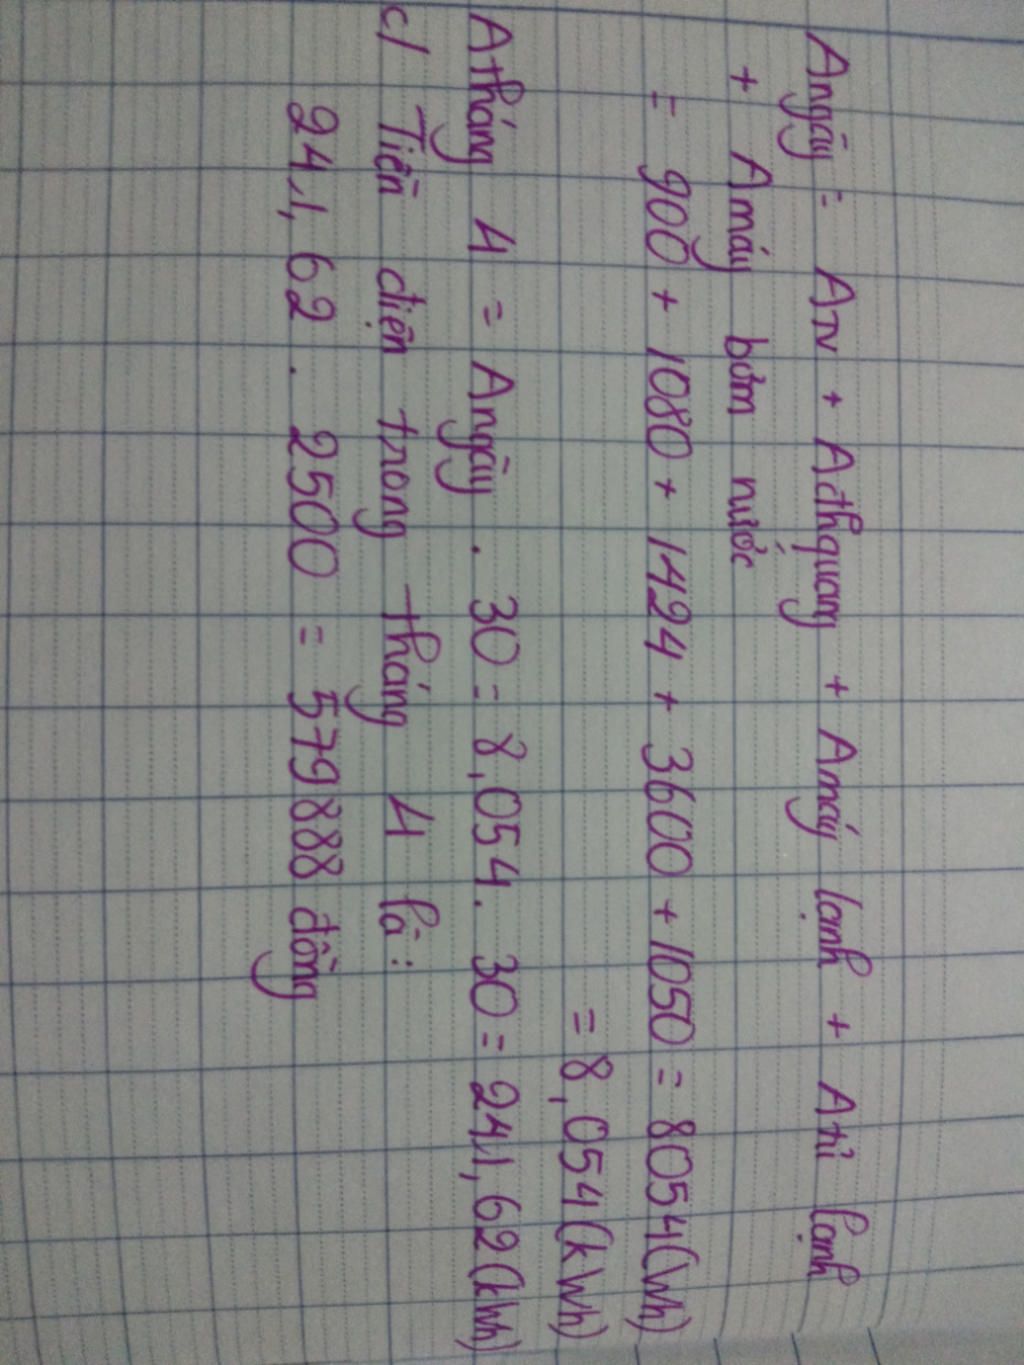 Angày = ATV + Ađhquang + Amáy lạnh + Atủ lạnh
+ Amáy bơm nước
= 900 + 1080 + 1424 + 3600 + 1050 = 8054(Wh)
= 8,054(kWh)
Atháng 4 = Angày . 30 = 8,054 . 30 = 241,62(kWh)
c/ Tiền điện trong tháng 4 là:
241,62 . 2500 = 579888 đồng